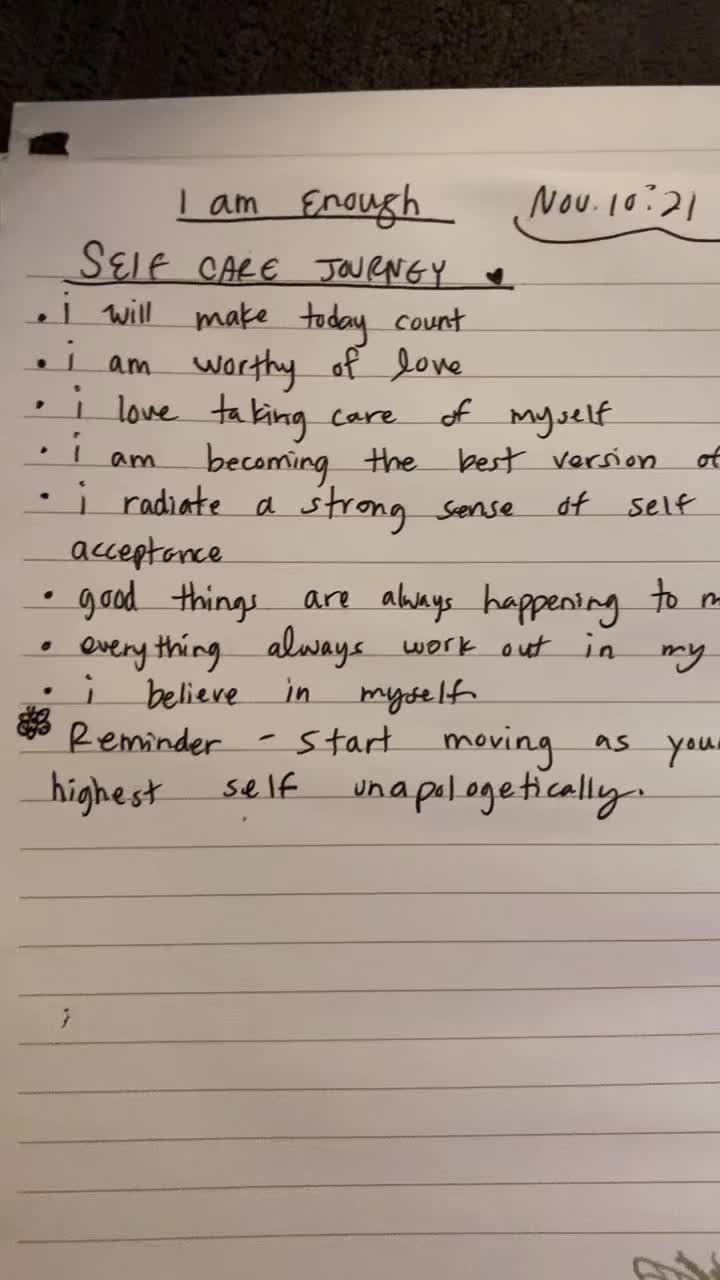 I am Enough Nov. 10:21
SELF CARE JOURNEY
• i will make today count
• i am worthy of love
• i love taking care of myself
• i am becoming the best version of
• i radiate a strong sense of self
acceptance
• good things are always happening to m
• everything always work out in my
• i believe in myself.
Reminder - Start moving as you
highest self unapologetically.
;